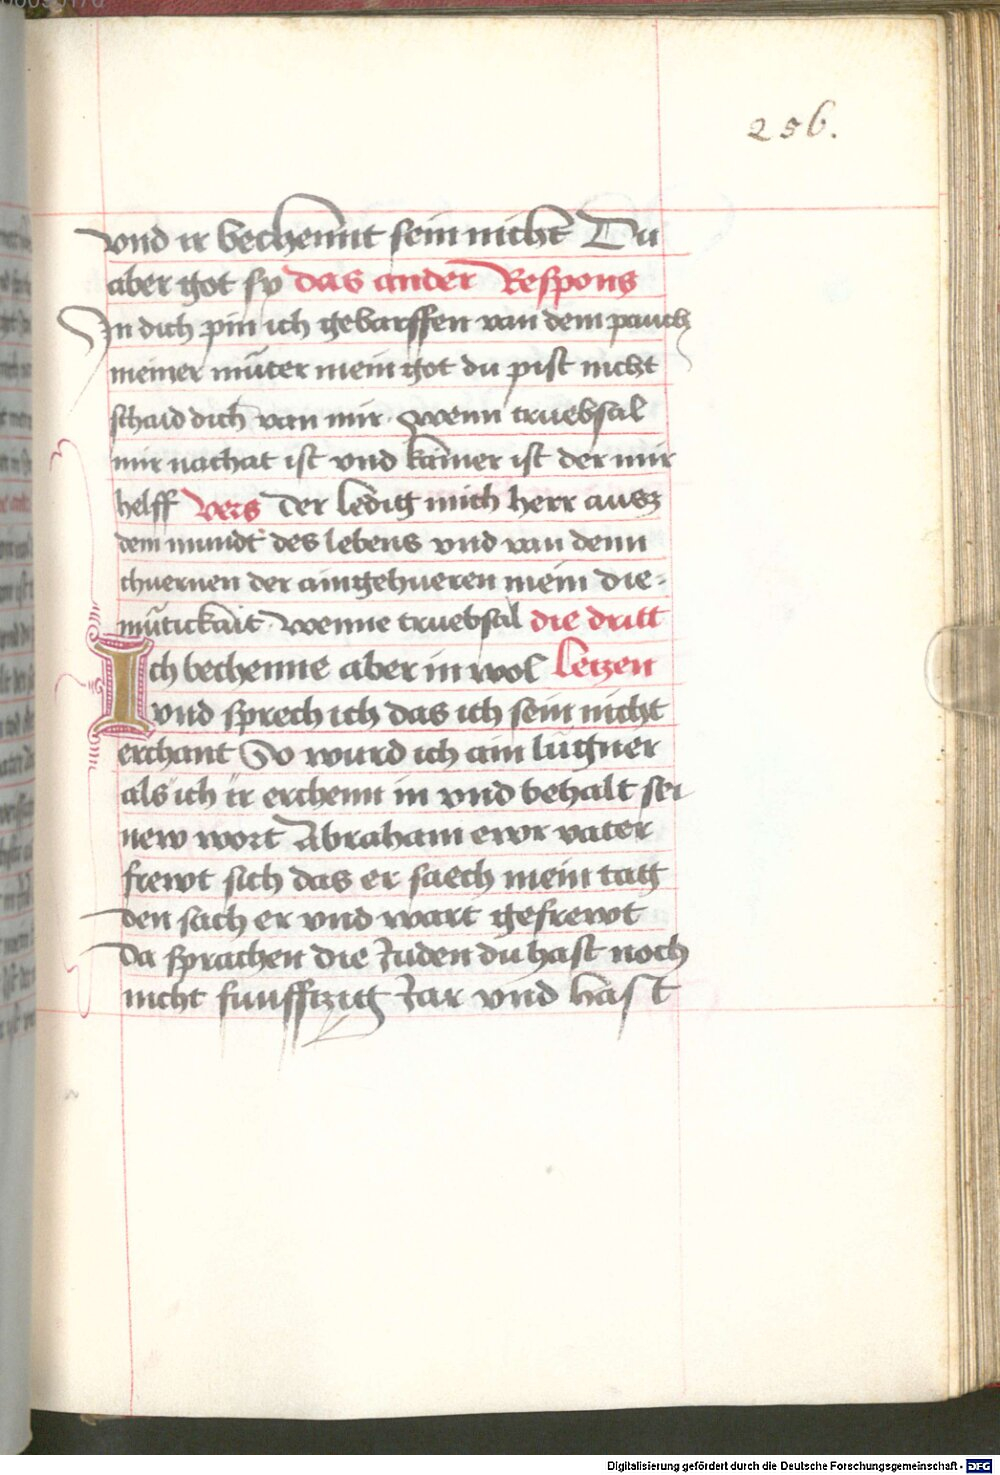 256.
vnd ir bechennt sein nicht Du
aber got sy das ander Respons
In dich pin ich gebarffen van dem pauch
meiner mueter mein got du pist nicht
schaid dich van mir. wenn truebsal
mir nachat ist vnd kainer ist der mir
helff Vers Der ledig mich herr ausz
dem mundt des lebens vnd van denn
ainhueren der aingehueren mein die-
mütickait. Wenne truebsal die dritt
Ich bechenne aber in wol letzen
vnd sprech ich das ich sein nicht
erchant So wurd ich ain lugner
als ich ir erchenn in vnd behalt sei
new wort Abraham ewr vater
frewt sich das er saech mein tag
den sach er vnd wart gefrewt
Da sprachen die Juden du hast noch
nicht funfftzig Jar vnd hast
Digitalisierung gefördert durch die Deutsche Forschungsgemeinschaft - DFG